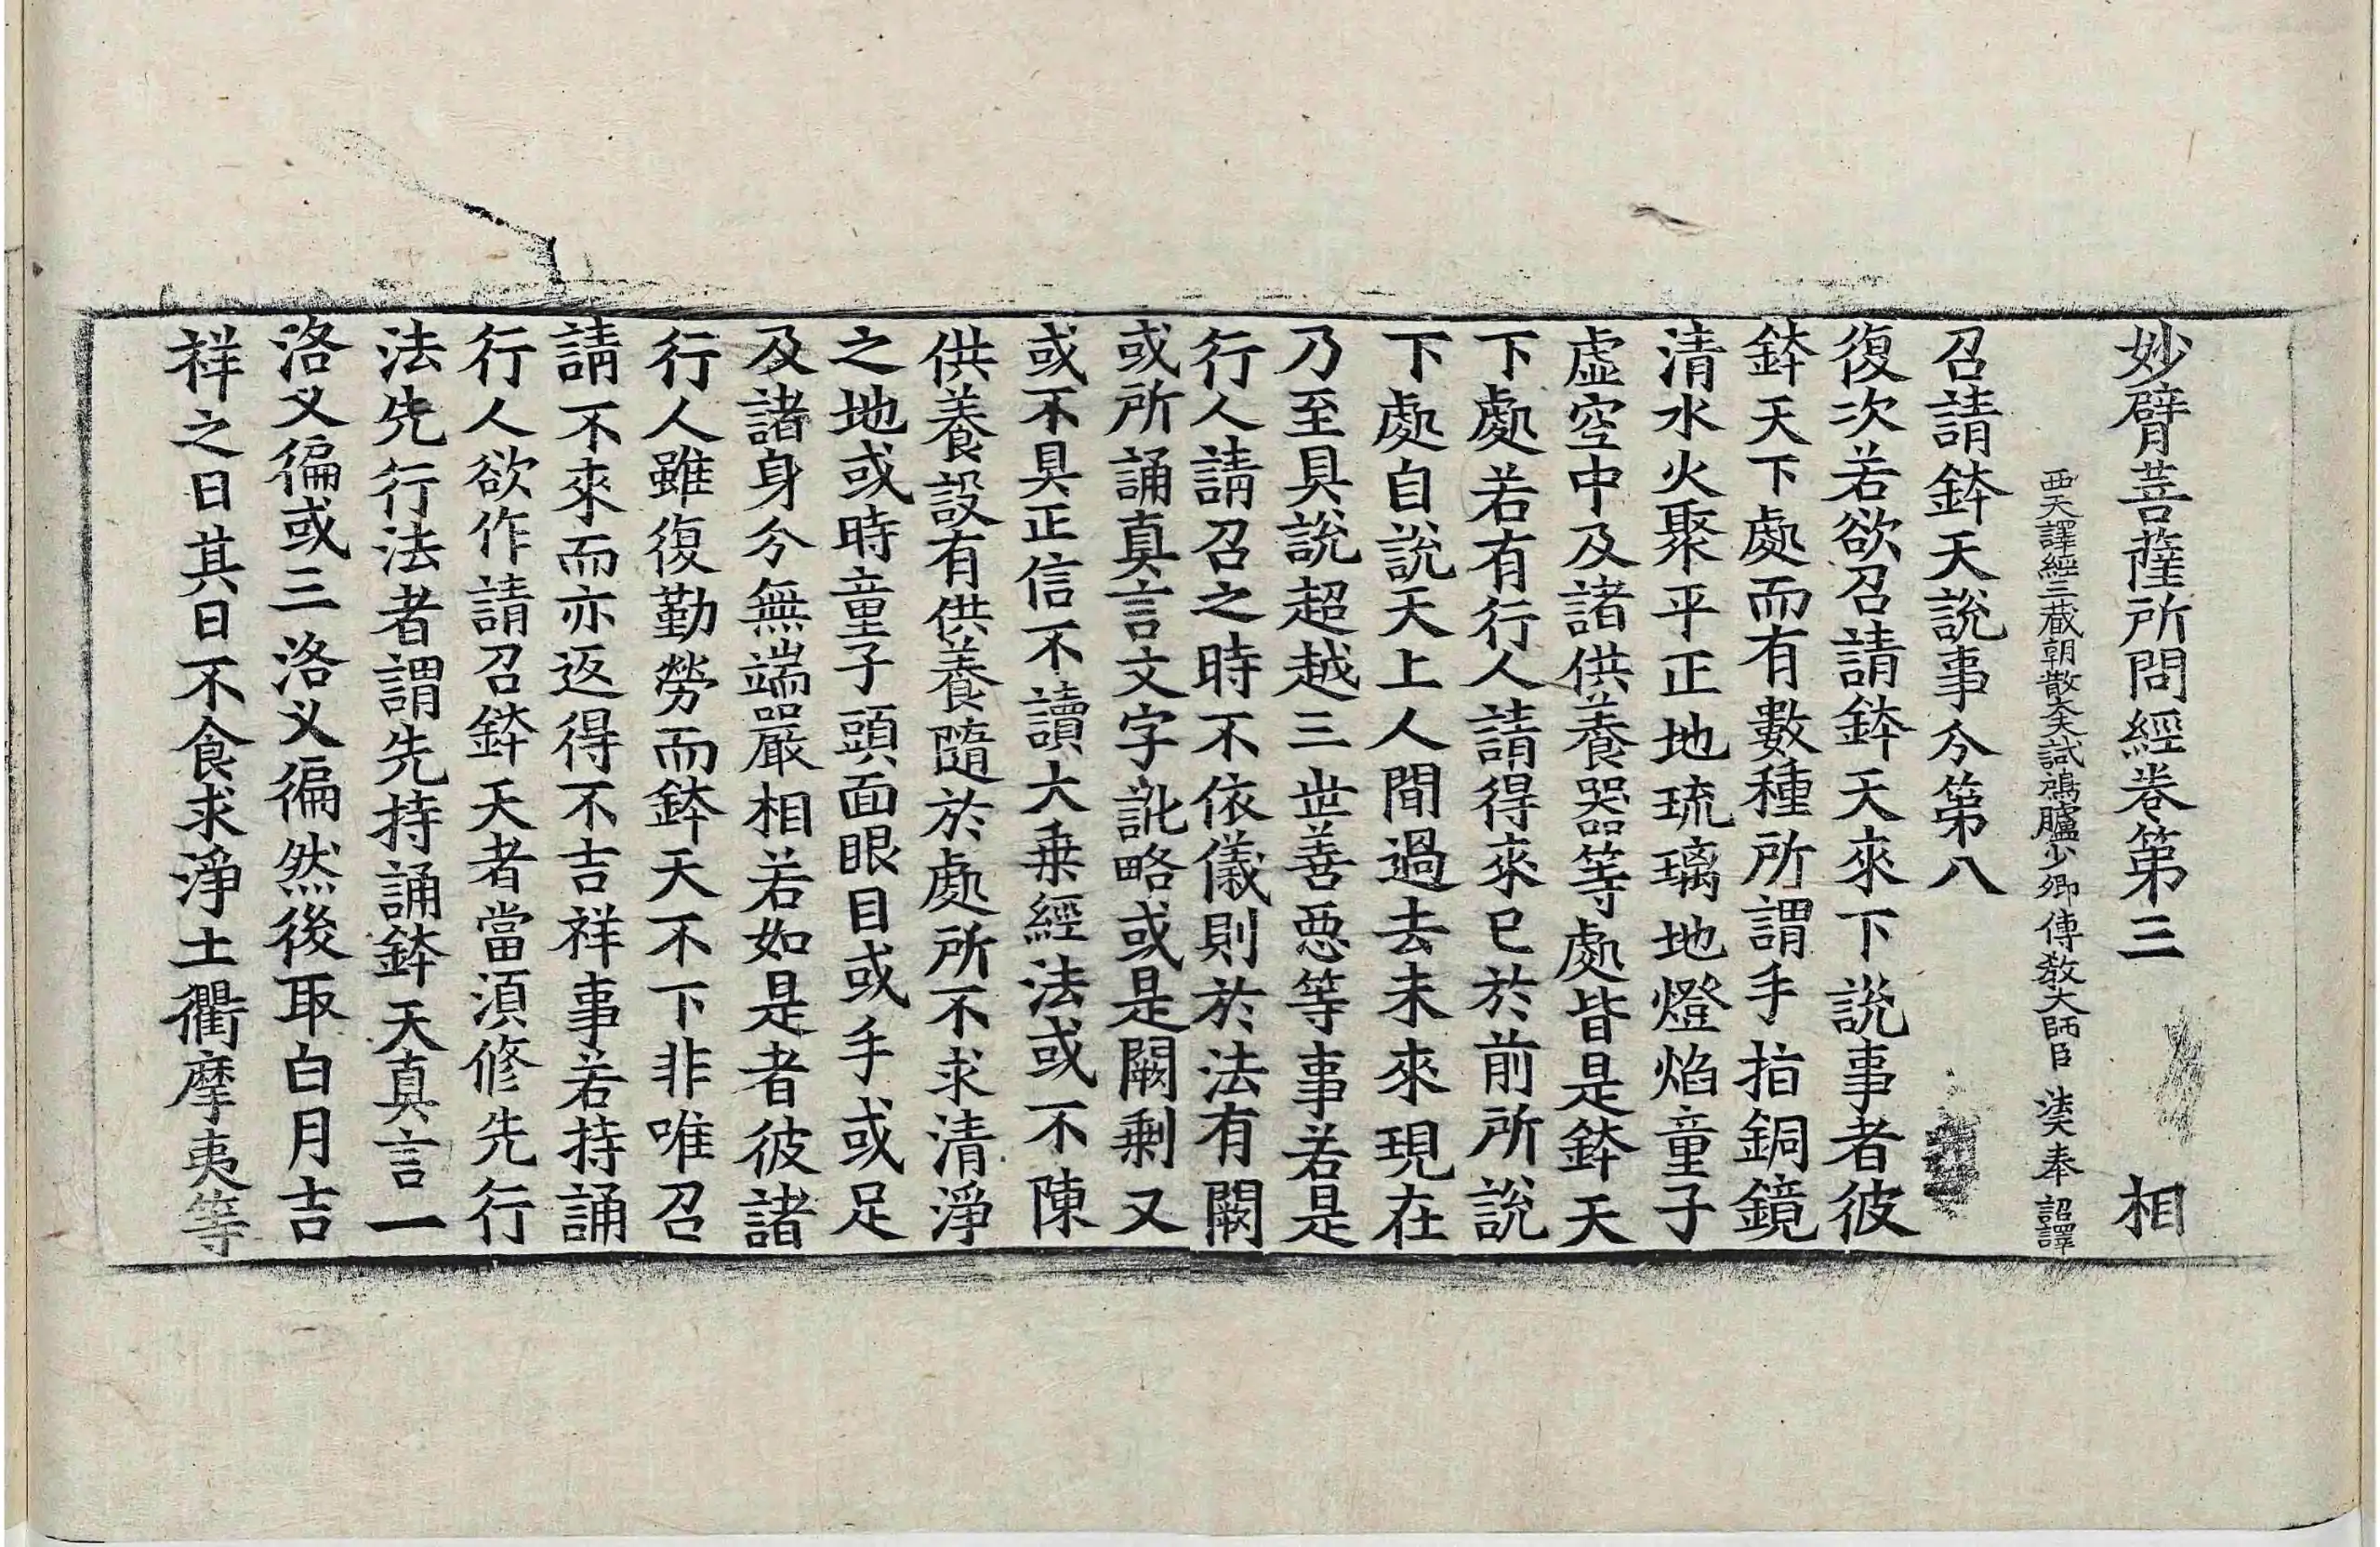 妙臂菩薩所問經卷第三　相
西天譯經三藏朝散大夫試鴻臚少卿傳教大師臣法天奉詔譯
召請鉢天說事分第八
復次若欲召請鉢天來下說事者彼
鉢天下處而有數種所謂手指銅鏡
清水火聚平正地琉璃地燈焰童子
虛空中及諸供養器等處皆是鉢天
下處若有行人請得來已於前所說
下處自說天上人間過去未來現在
乃至具說超越三世善惡等事若是
行人請召之時不依儀則於法有闕
或所誦真言文字訛略或是闕剩又
或不具正信不讀大乘經法或不陳
供養設有供養隨於處所不求清淨
之地或時童子頭面眼目或手或足
及諸身分無端嚴相若如是者彼諸
行人雖復勤勞而鉢天不下非唯召
請不來而亦返得不吉祥事若持誦
行人欲作請召鉢天者當須修先行
法先行法者謂先持誦鉢天真言一
洛叉徧或三洛叉徧然後取白月吉
祥之日其日不食求淨土衢摩夷等